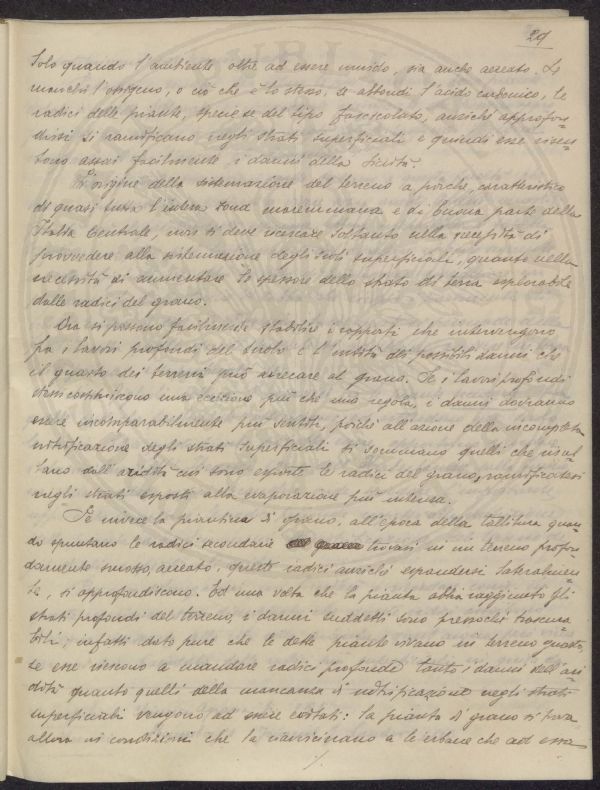 29
Solo quando l'ambiente, oltre ad essere umido, sia anche aereato. Se
manchi l'ossigeno, o ciò che è lo stesso, se abbondi l'acido carbonico, le
radici delle piante, specie se del tipo fascicolato, anziché approfon-
dirsi si ramificano negli strati superficiali e quindi esse risen-
tono assai facilmente, i danni della siccità.
L'origine della sistemazione del terreno a porche, caratteristico
di quasi tutta l'intera zona maremmana e di buona parte della
Italia Centrale, non si deve ricercare soltanto nella necessità di
provvedere alla sistemazione degli scoli superficiali, quanto nella
necessità di aumentare lo spessore dello strato di terra esplorabile
dalle radici del grano.
Ora si possono facilmente stabilire i rapporti che intervengono
fra i lavori profondi del suolo e l'entità dei possibili danni che
il guasto dei terreni può arrecare al grano. Se i lavori profondi
stessi costituiscono una eccezione più che una regola, i danni dovranno
essere incomparabilmente più sentiti, poiché all'azione della incompleta
nitrificazione degli strati superficiali si sommano quelli che risul-
tano dall'aridità cui sono esposte le radici del grano, ramificatesi
negli strati esposti alla evaporazione più intensa.
Se invece la piantina di grano, all'epoca della tallitura quan-
do spuntano le radici secondarie trovasi in un terreno profon-
damente smosso, aereato, queste radici anziché espandersi lateralmen-
te, si approfondiscono. Ed una volta che la pianta abbia raggiunto gli
strati profondi del terreno, i danni suddetti sono pressoché trascura-
bili; infatti dato pure che le dette piante vivano in terreno guasto,
se esse riescono a mandare radici profonde, tanto i danni dell'ari-
dità quanto quelli della mancanza di nitrificazione negli strati
superficiali vengono ad essere evitati: la pianta di grano si trova
allora in condizioni che la ravvicinano a le erbacee che ad essa
./.